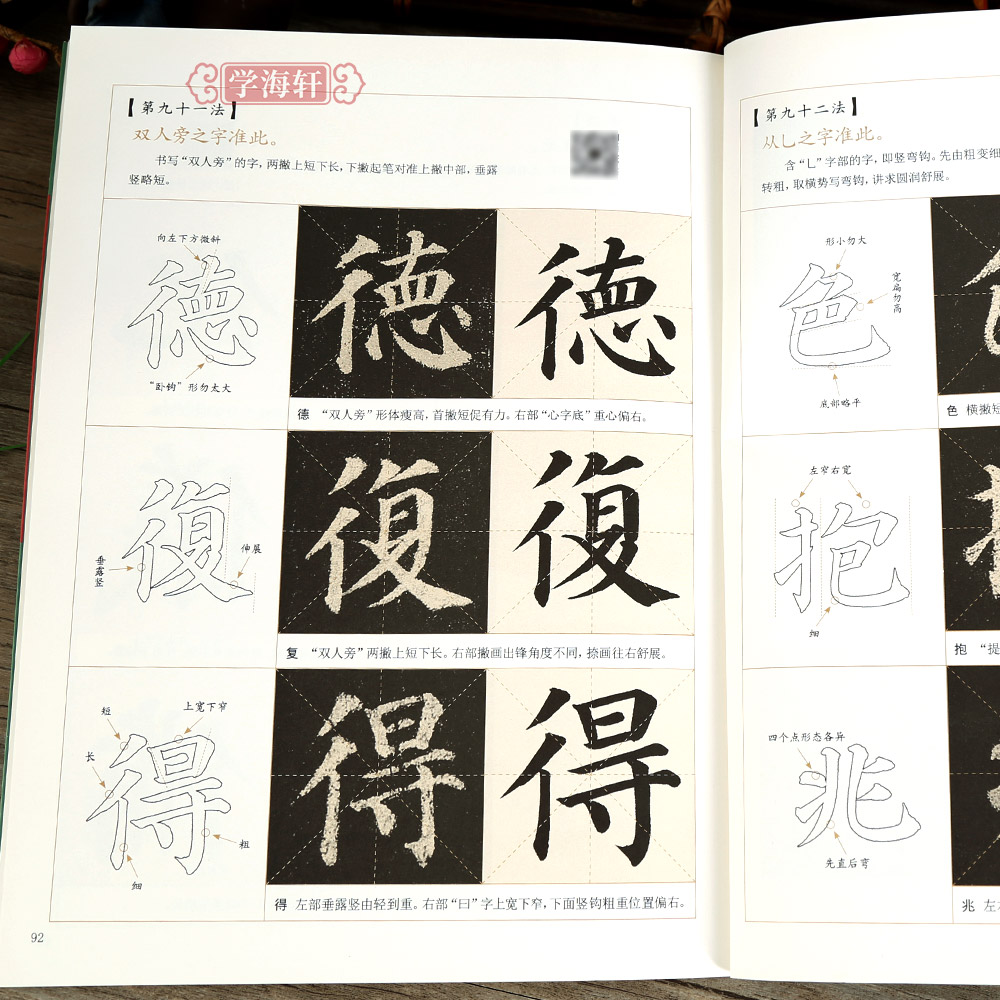 学海轩
【第九十一法】
双人旁之字准此。
书写“双人旁”的字，两撇上短下长，下撇起笔对准上撇中部，垂露
竖略短。
向左下方微斜
德
“卧钩”形勿太大
德
德
德 “双人旁”形体瘦高，首撇短促有力。右部“心字底”重心偏右。
復
垂露竖
伸展
復
復
复 “双人旁”两撇上短下长。右部撇画出锋角度不同，捺画往右舒展。
短
上宽下窄
长
得
粗
细
得
得
得 左部垂露竖由轻到重。右部“曰”字上宽下窄，下面竖钩粗重位置偏右。
92
【第九十二法】
从乚之字准此。
含“乚”字部的字，即竖弯钩。先由粗变细
转粗，取横势写弯钩，讲求圆润舒展。
形小勿大
宽扁勿高
色
底部略平
色 横撇短
左窄右宽
抱
细
抱 “提
四个点形态各异
兆
先直后弯
兆 左